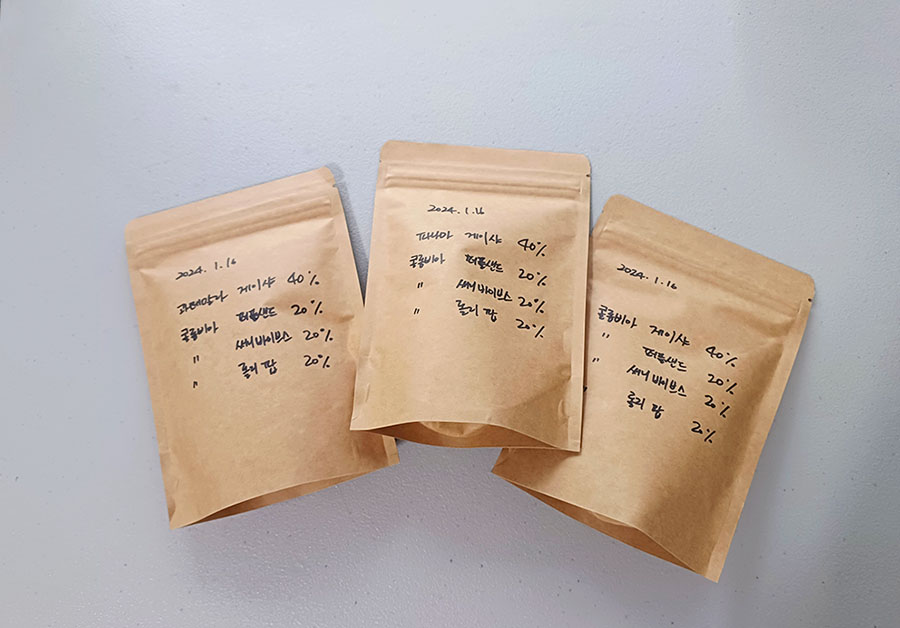 2024. 1. 16
과테말라 게이샤 40%
콜롬비아 퍼플샌드 20%
" 써니바이브스 20%
" 롤리팝 20%
2024. 1. 16
파나마 게이샤 40%
콜롬비아 퍼플샌드 20%
" 써니바이브스 20%
" 롤리팝 20%
2024. 1. 16
콜롬비아 게이샤 40%
" 퍼플샌드 20%
" 써니바이브스 20%
" 롤리팝 20%